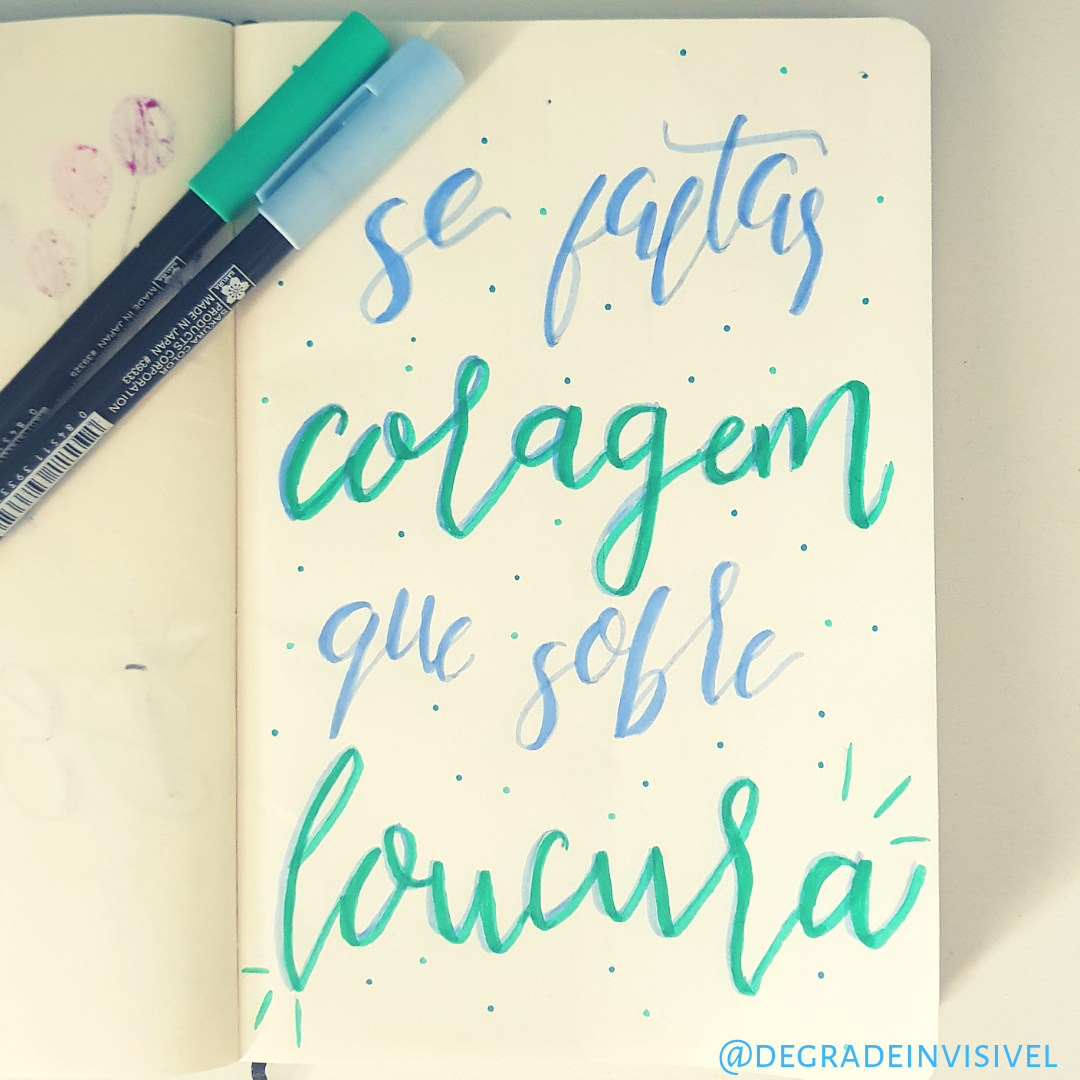 se faltas
coragem
que sobre
loucura
SAKURA
MADE IN JAPAN
SAKURA
SAKURA COLOR
PRODUCTS CORPORATION
MADE IN JAPAN #39333
@DEGRADEINVISIVEL